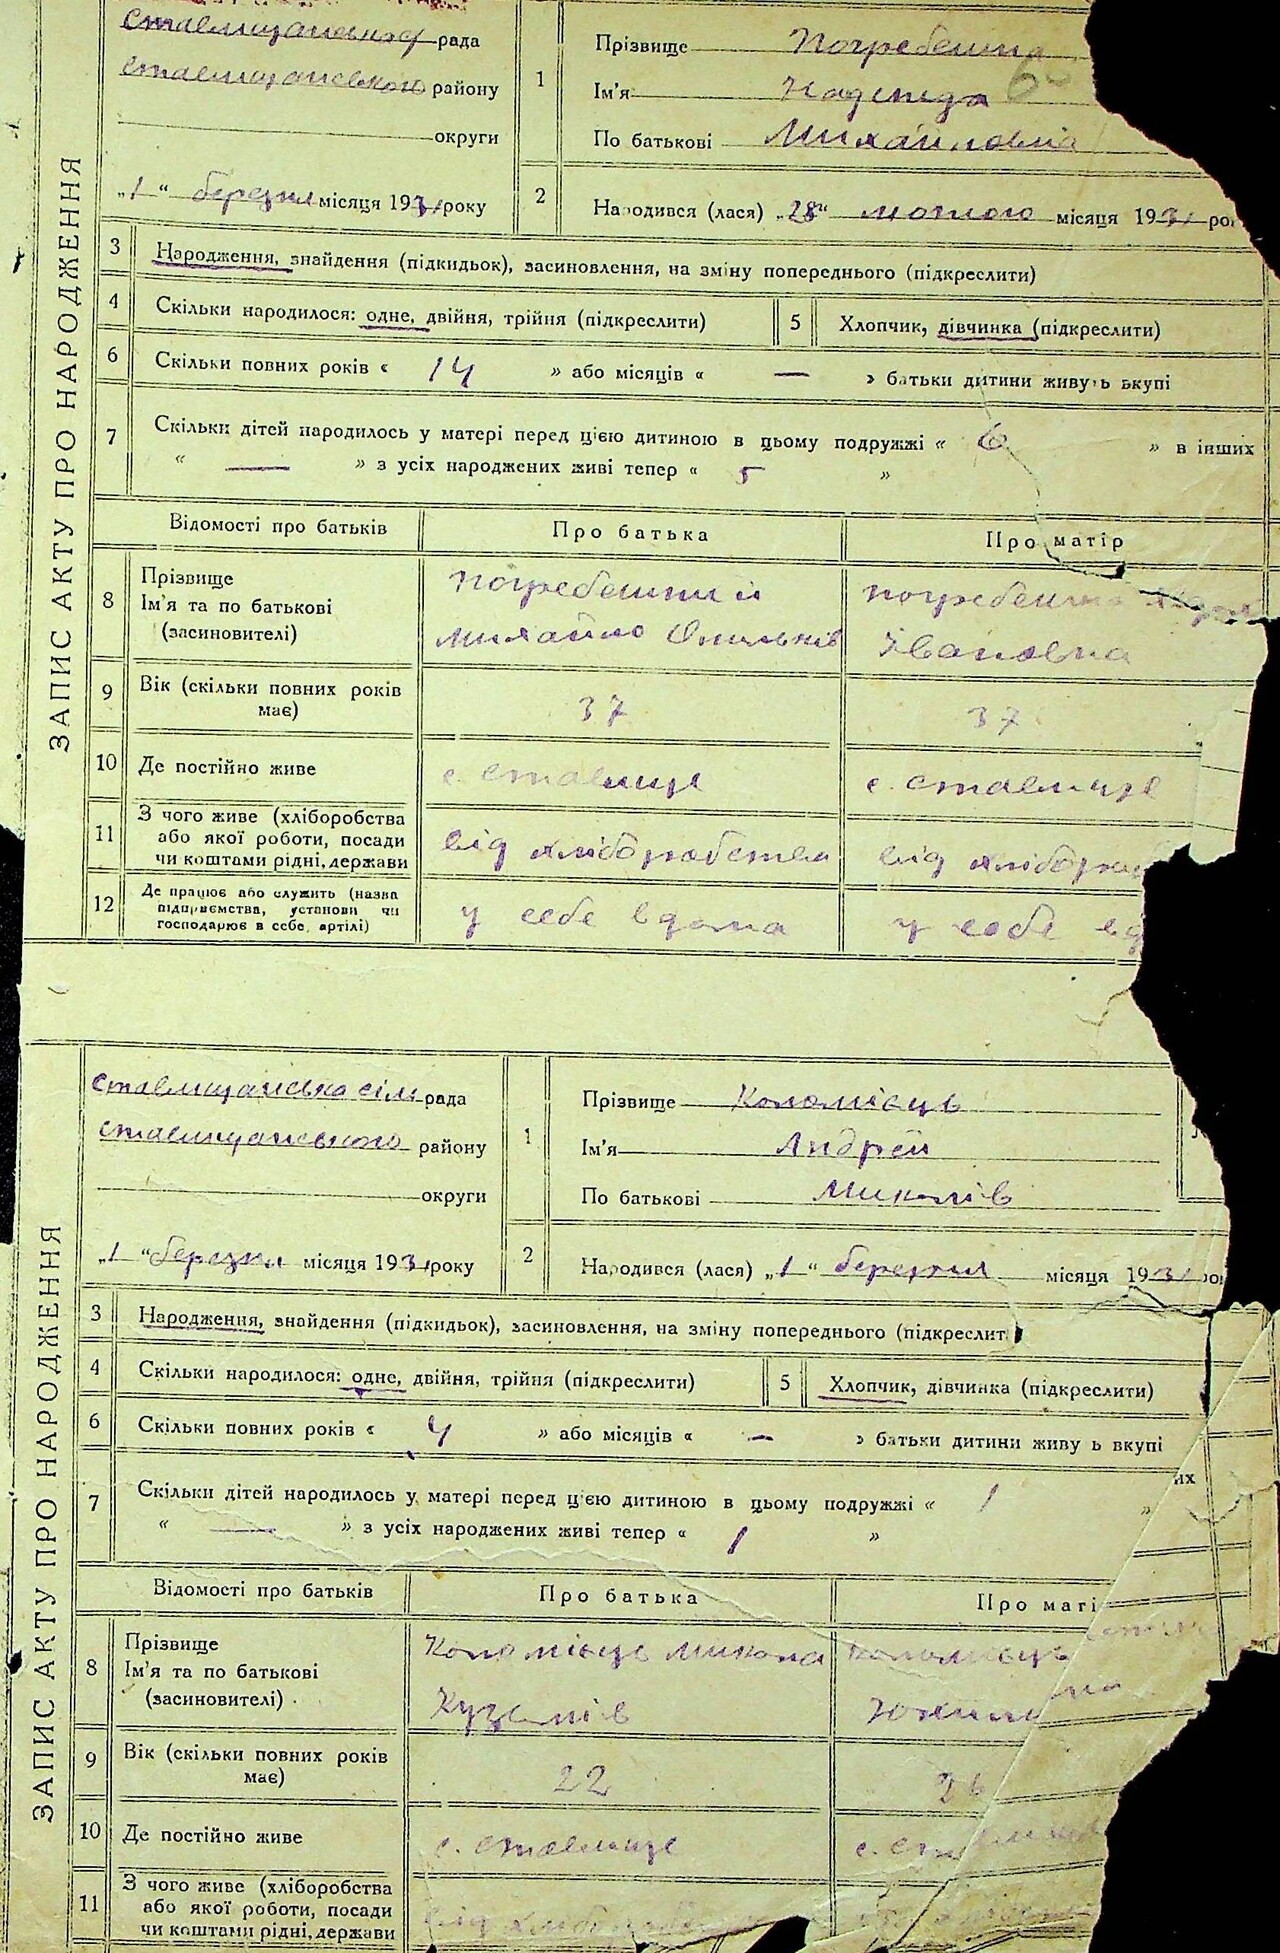 ЗАПИС АКТУ ПРО НАРОДЖЕННЯ
рада
Ставищанського району
округи
„1“ березня місяця 1931 року
1
Прізвище
Ім'я Надежда
По батькові Михайловна
2
Народився (лася) „28“ лютого місяця 1931
3 Народження, знайдення (підкидьок), засиновлення, на зміну попереднього (підкреслити)
4 Скільки народилося: одне, двійня, трійня (підкреслити) 5 Хлопчик, дівчинка (підкреслити)
6 Скільки повних років « 14 » або місяців « — » батьки дитини живуть вкупі
7 Скільки дітей народилось у матері перед цією дитиною в цьому подружжі « 6 » в інших
« — » з усіх народжених живі тепер « 5 »
Відомості про батьків Про батька Про матір
8 Прізвище
Ім'я та по батькові
(засиновителі)
Михайло
Івановна
9 Вік (скільки повних років
має) 37 37
10 Де постійно живе с. Ставище с. Ставище
11 З чого живе (хліборобства
або якої роботи, посади
чи коштами рідні, держави
від хліборобства від
12 Де працює або служить (назва
підприємства, установи чи
господарює в себе, артілі)
у себе вдома у себе
ЗАПИС АКТУ ПРО НАРОДЖЕННЯ
Ставищанська сіль рада
Ставищанського району
округи
„1“ березня місяця 1931 року
1
Прізвище Коломієць
Ім'я Андрей
По батькові Миколів
2
Народився (лася) „1“ березня місяця 1931
3 Народження, знайдення (підкидьок), засиновлення, на зміну попереднього (підкреслит
4 Скільки народилося: одне, двійня, трійня (підкреслити) 5 Хлопчик, дівчинка (підкреслити)
6 Скільки повних років « 4 » або місяців « — » батьки дитини живу ь вкупі
их
7 Скільки дітей народилось у матері перед цією дитиною в цьому подружжі « 1 »
« — » з усіх народжених живі тепер « 1 »
Відомості про батьків Про батька Про маті
8 Прізвище
Ім'я та по батькові
(засиновителі)
Коломієць Микола Коломієць
Кузьмів
9 Вік (скільки повних років
має) 22 26
10 Де постійно живе с. Ставище
11 З чого живе (хліборобства
або якої роботи, посади
чи коштами рідні, держави
від хліборобства